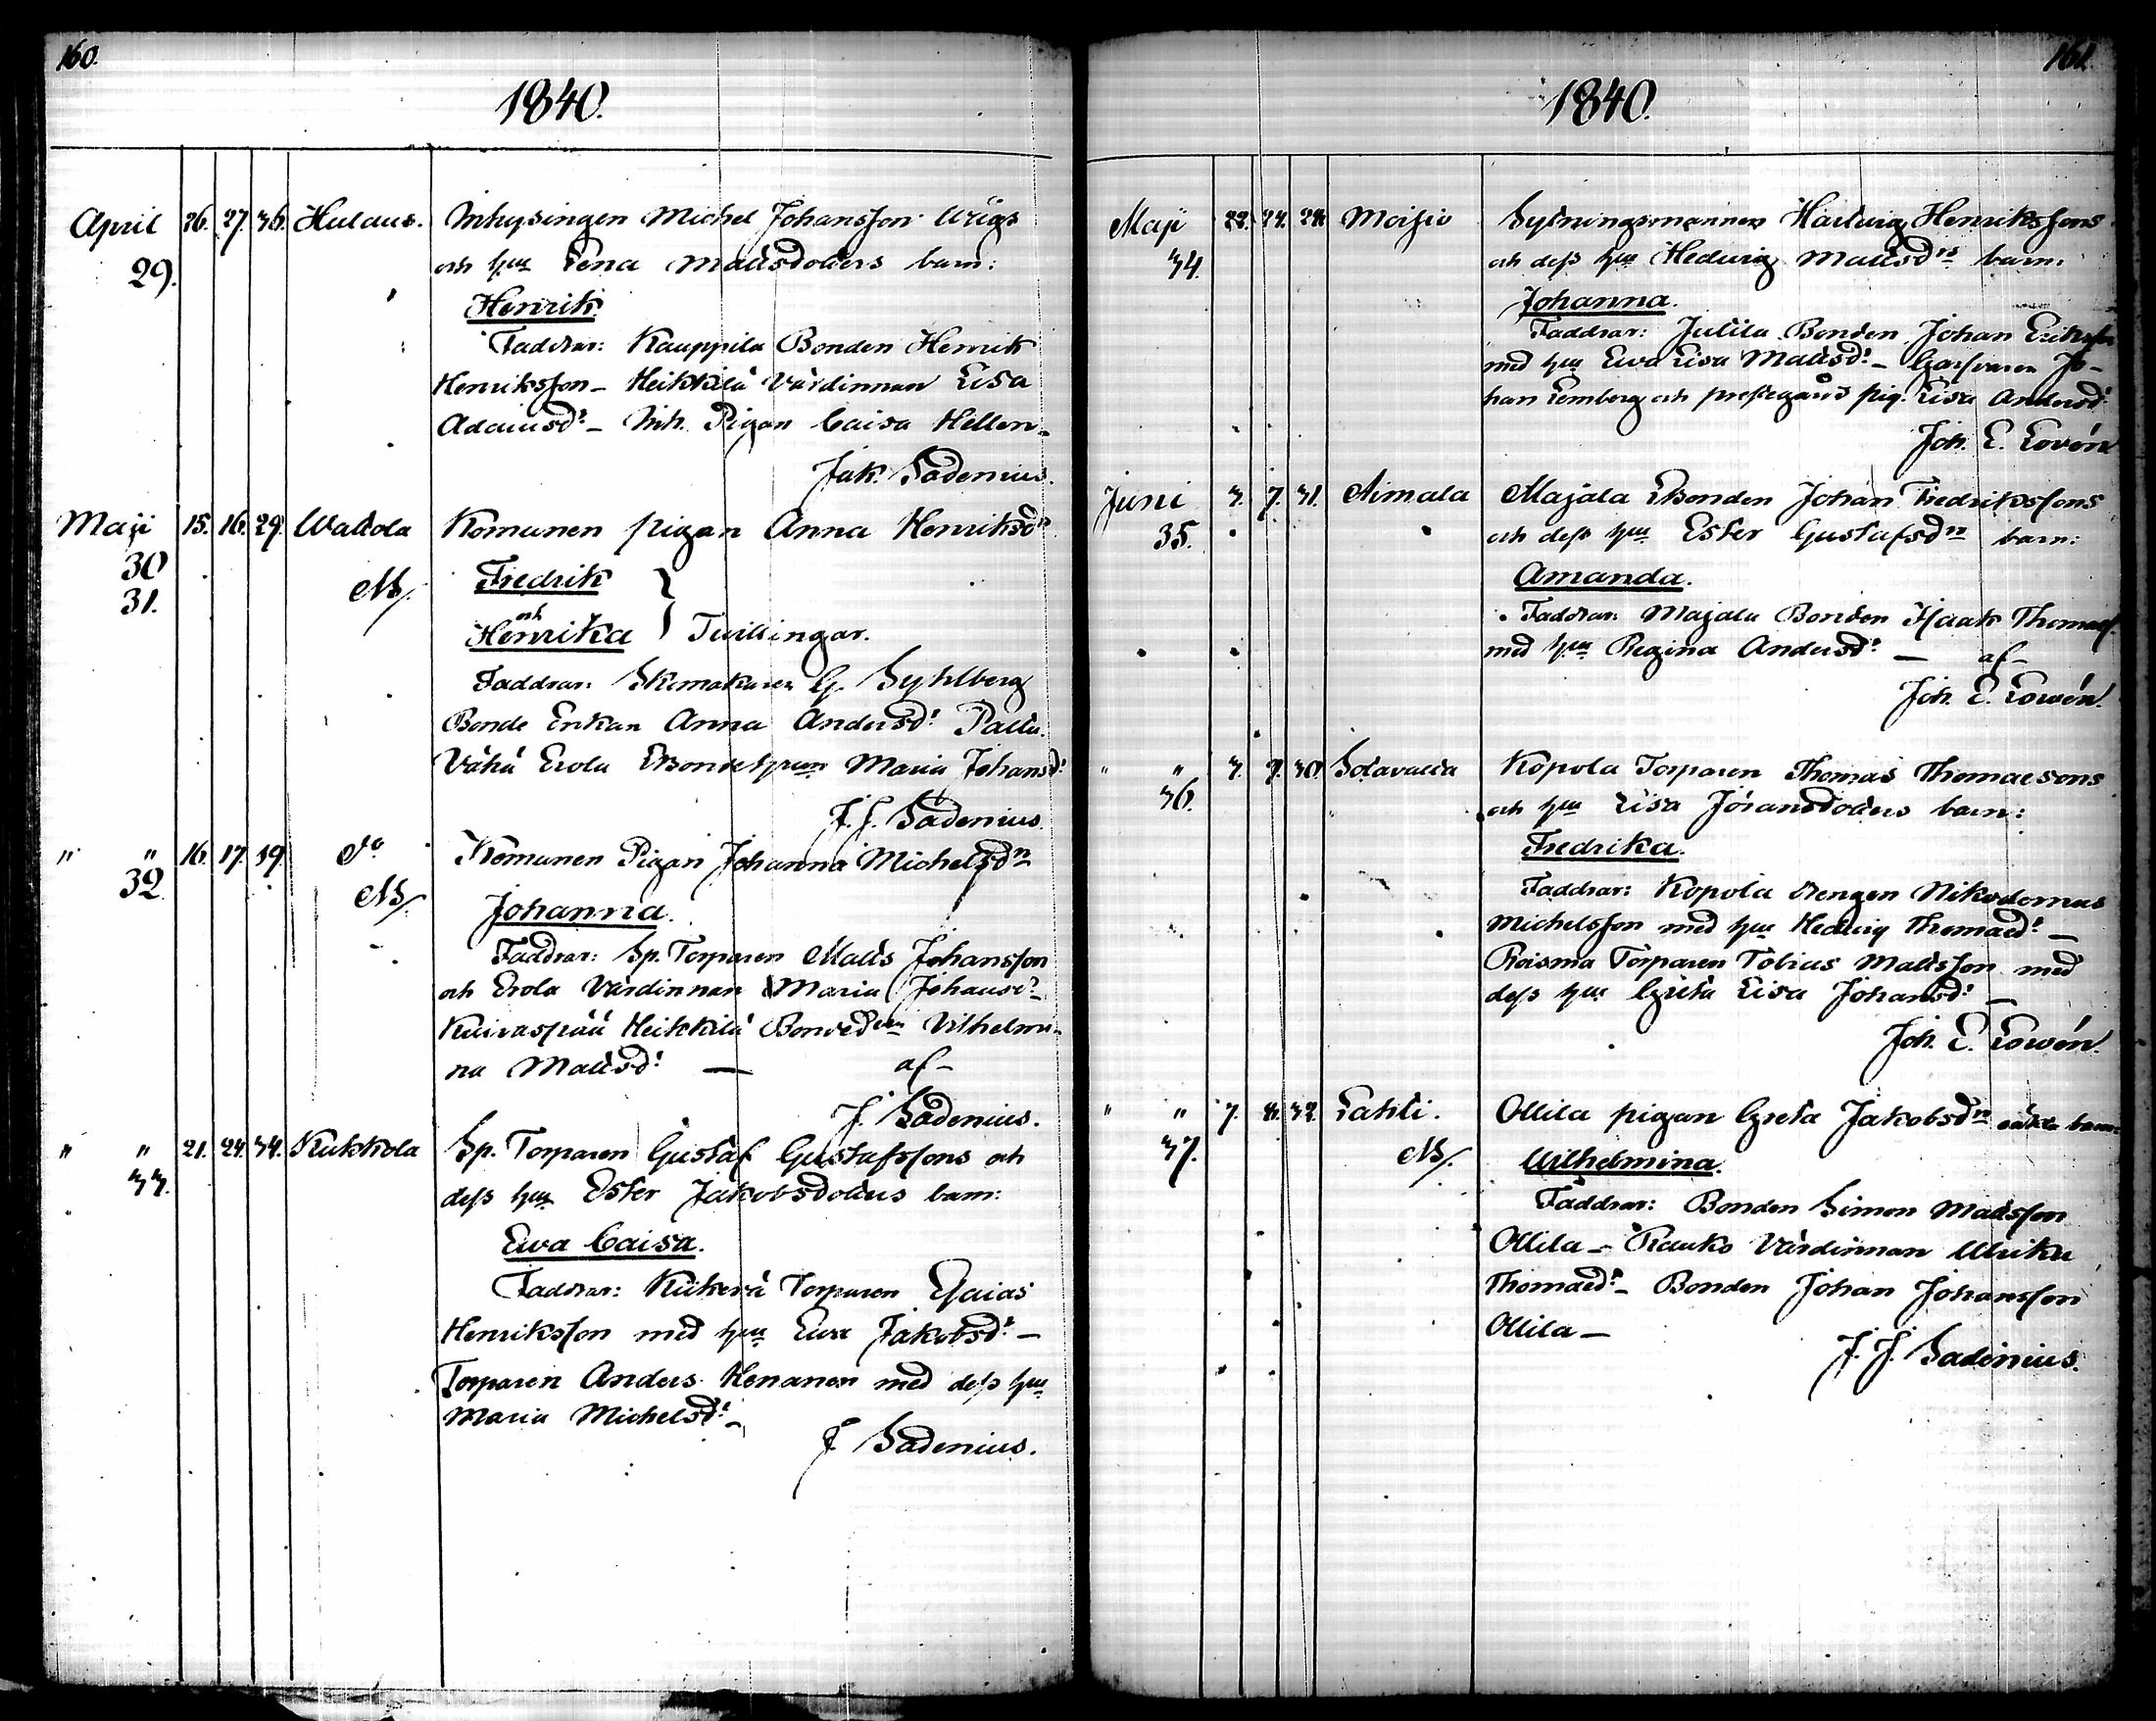 160.
1840.
April 26. 27. 36. Hulaus. Inhysingen Michel Johansson Wrigs
29. och hu Lena Mattsdotters barn:
Henrik
Faddrar: Kauppila Bonden Henrik
Henriksson – Heikkilä Värdinnan Lisa
Adamsd: – Inh. Pigan Caisa Hellen –
Jak. Sadenius.
Maji 15. 16. 29. Wattola Komunen pigan Anna Henriksdr
30
31. NB. Fredrik
och
Henrika } Tvillingar.
Faddrar: Skomakaren G. Syhlberg
Bonde Enkan Anna Andersd: Pallu.
Vähä Erola Bondehrun Maria Johansd:
J. J. Sadenius.
" " 16. 17. 19. do Komunen Pigan Johanna Michelsdr
32 NB. Johanna.
Faddrar: Sp. Torparen Matts Johansson
och Erola Värdinnan Maria Johansd: –
Kuivaspää Heikkilä Vilhelmi-
na Mattsd: — af –
J. Sadenius.
" " 21. 24. 34. Kukkola Sp. Torparen Gustaf Gustafssons och
33. dess hu Ester Jakobsdotters barn:
Ewa Caisa.
Faddrar: Torparen Esaias
Henriksson med hu Ewa Jakobsd: –
Torparen Anders Henanen med dess hu
Maria Michelsd: –
J. Sadenius.
161.
1840.
Maji 22. 24. 28. Moisio Sytningsmannen Hartwig Henrikssons
34. och dess hu Hedwig Mattsdrs barn:
Johanna.
Faddrar: Julila Bonden Johan Eriksson
med hu Ewa Lisa Mattsd: – Garfvaren Jo-
han Lemberg och prestegårds pig. Lisa Andersd:
Joh. E. Lovén
Juni 3. 7. 31. Aimala Majala Bonden Johan Fredrikssons
35. och dess hu Ester Gustafsdrs barn:
Amanda.
Faddrar: Majala Bonden Isaak Thomass.
med hu Regina Andersd: — af –
Joh. E. Lowén.
" " 3. 7. 30. Sotavalta Kopola Torparen Thomas Thomaesons
36. och hu Lisa Johansdotters barn:
Fredrika.
Faddrar: Kopola drengen Nikodemus
Michelsson med hu Hedwig Thomaed: –
Roisma Torparen Tobias Mattsson med
dess hu Greta Lisa Johansd: –
Joh. E. Lowén.
" " 7. 8. 32. Lahti. Ollila pigan Greta Jakobsdrs oäkta barn
37. NB. Wilhelmina.
Faddrar: Bonden Simon Mattsson
Ollila – Rauko Värdinnan Ulrika
Thomaed: – Bonden Johan Johansson
Ollila –
J. J. Sadenius.